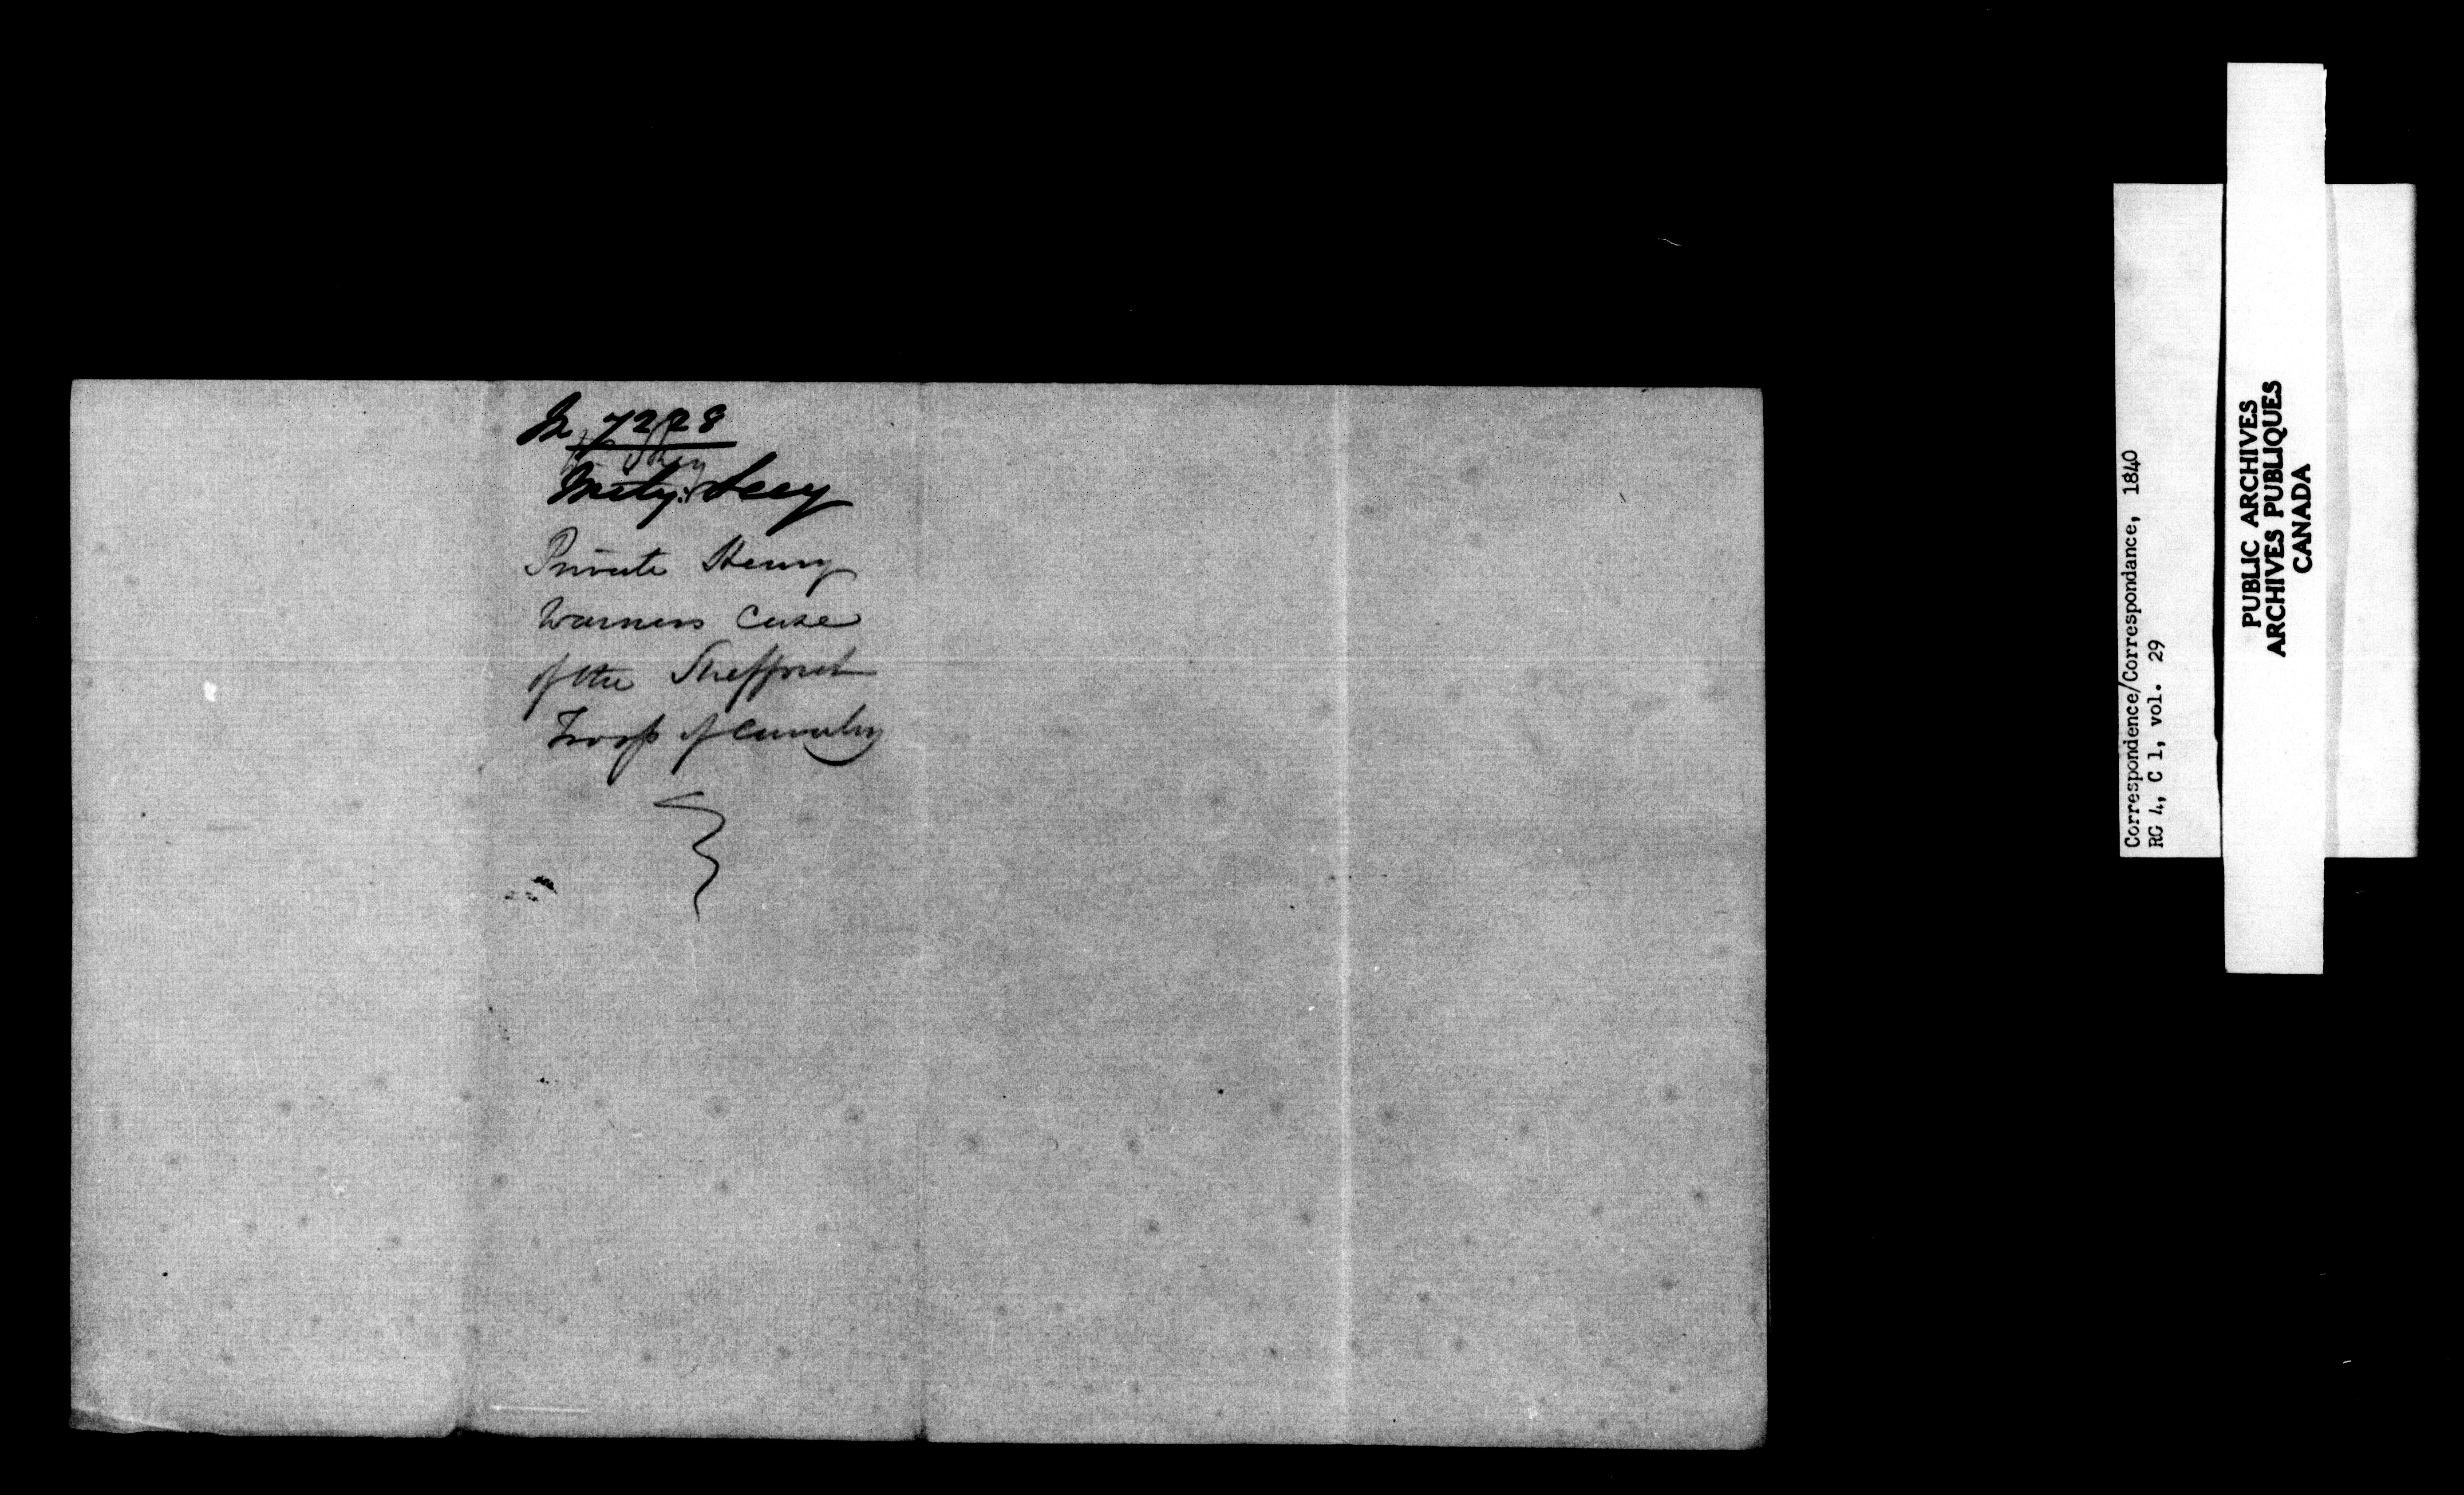 7228
Mily. Secy
Private Henry
Warners Case
of the Shefford
Troop of Cavalry
Correspondence/Correspondance, 1840
RG 4, C 1, vol. 29
PUBLIC ARCHIVES
ARCHIVES PUBLIQUES
CANADA